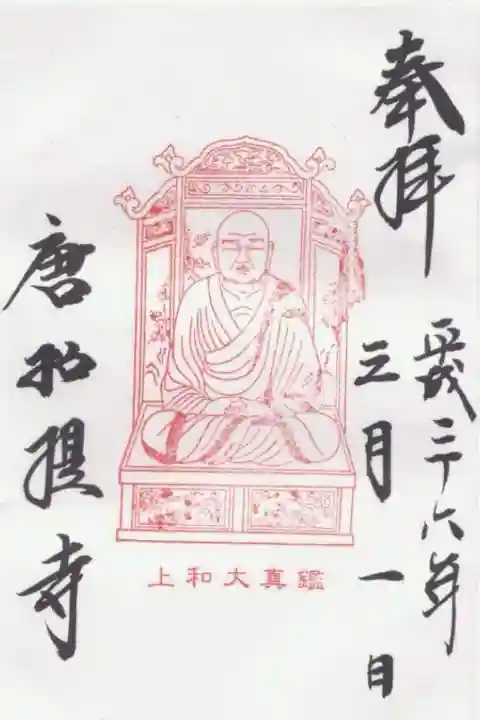 奉拜
平成二十六年
三月一日
上和大真鑑
唐招提寺